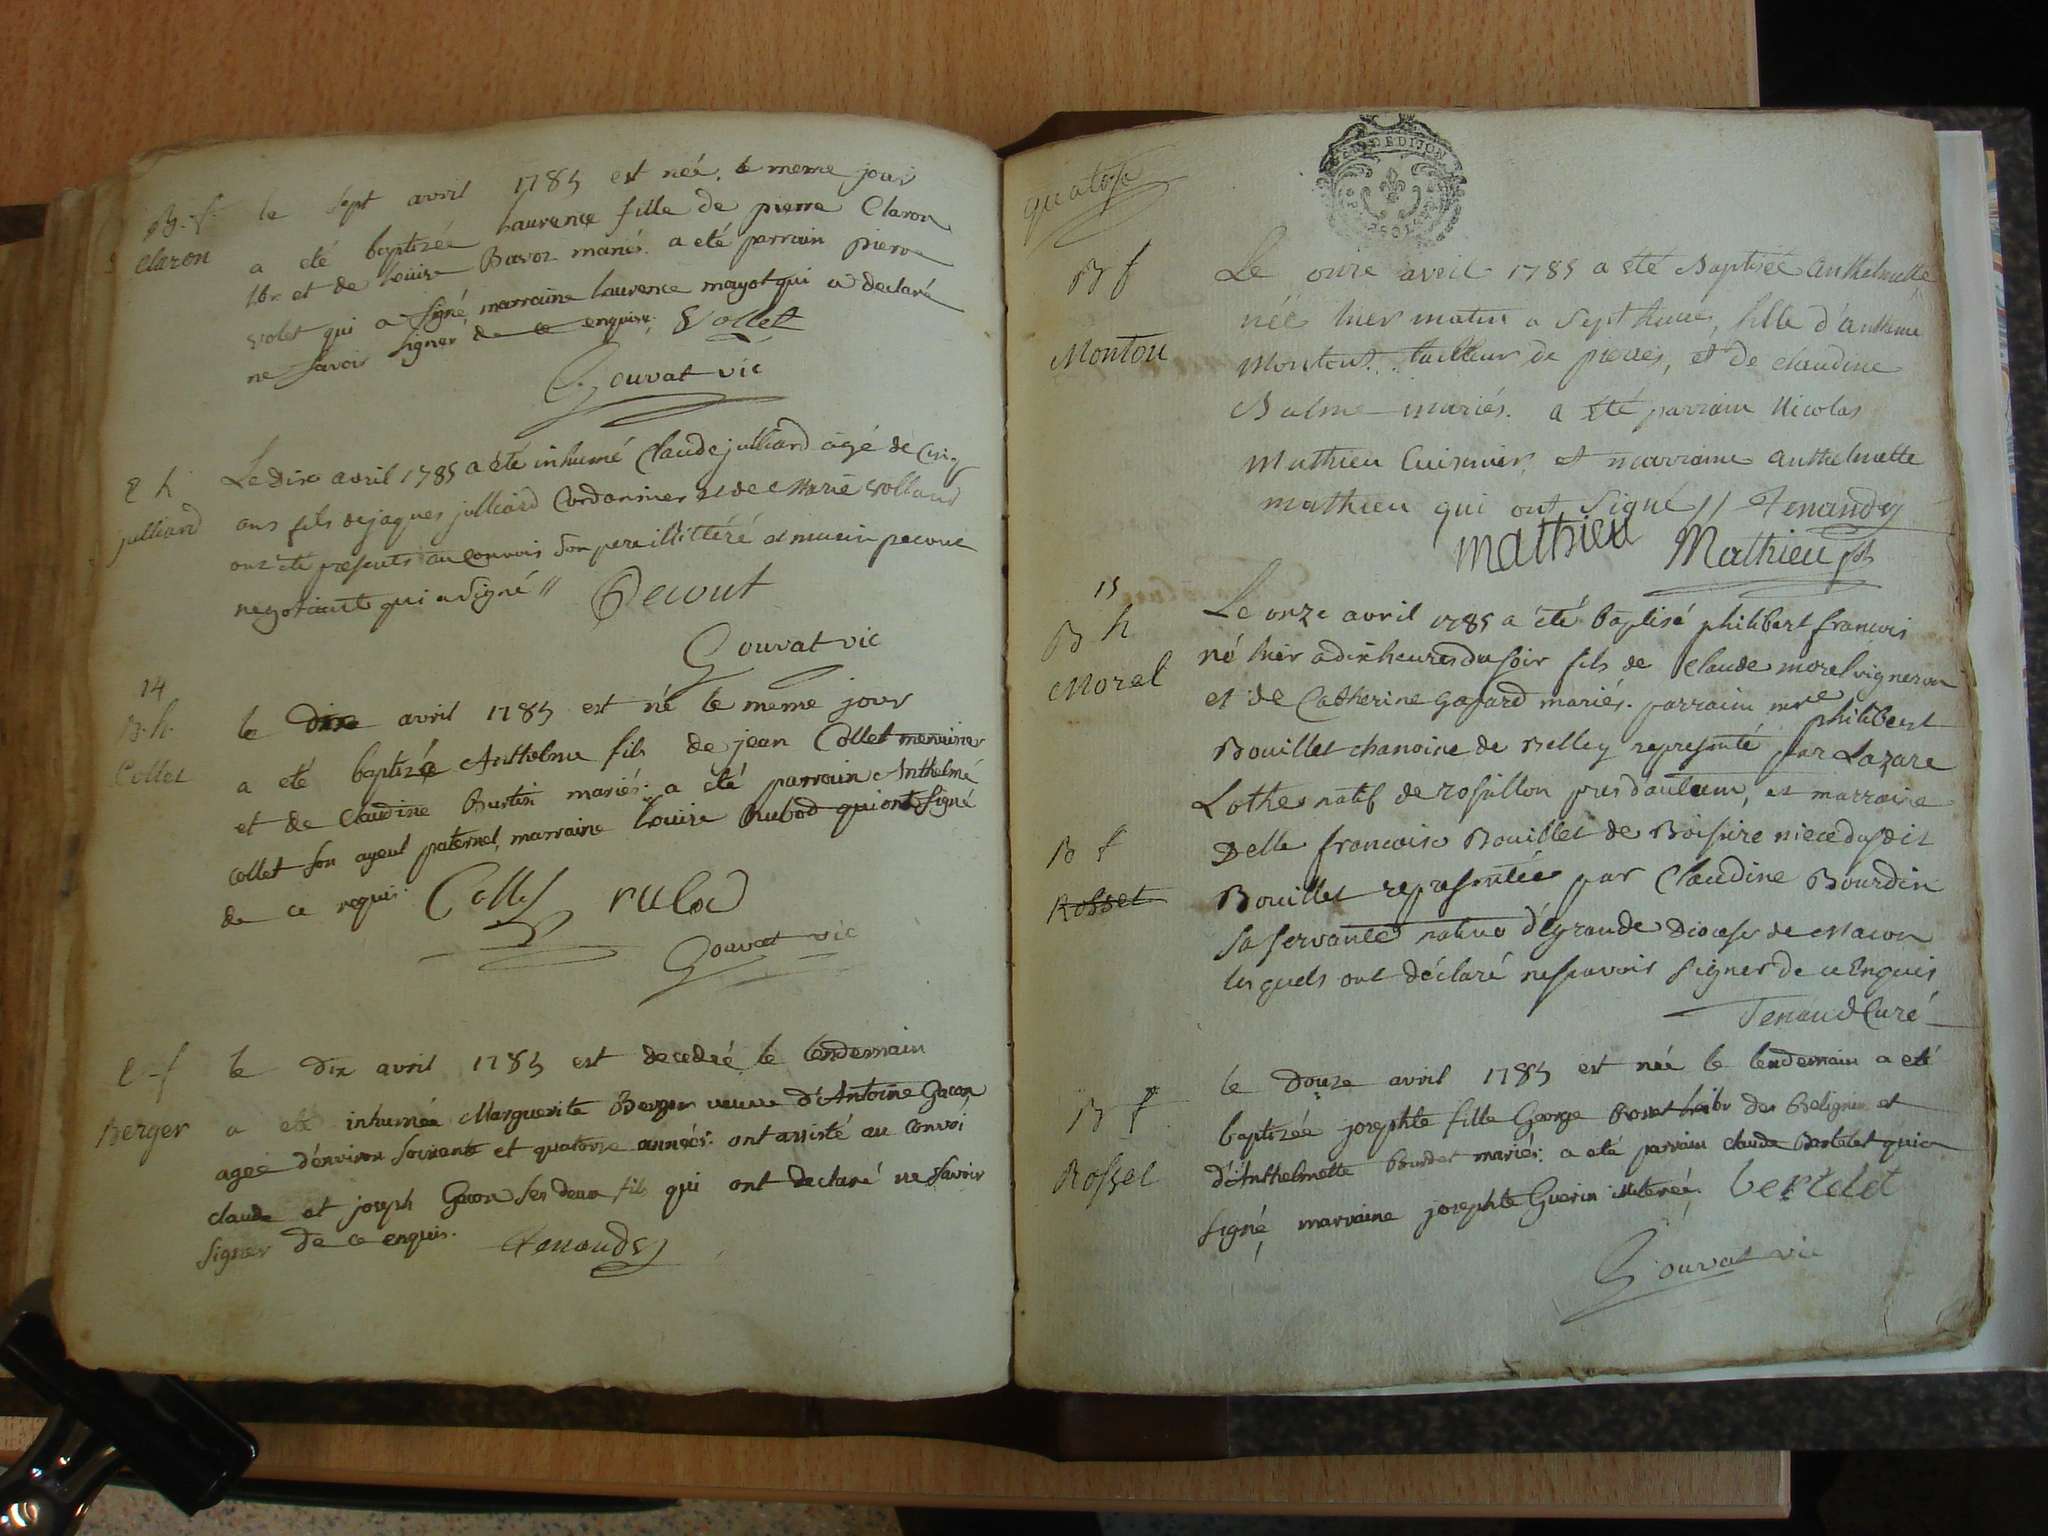 B. f. le sept avril 1785 est née, le meme jour
Claron a eté baptizée Laurence fille de pierre Claron
lbr et de Louise Bavoz mariés. a eté parrain pierre
Volet qui a signé, marraine Laurence mayot qui a declaré
ne savoir signer de ce enquise. Vollet
Gouvat vic
E h Le Dix avril 1785 a été inhumé Claude julliard agé de Cinq
julliard ans fils de jaques julliard Cordonnier et de Marie Volland
ont été présents au convois son pere illitéré et
negotiant qui a signé //
Gouvat vic
14
B. h. le dix avril 1785 est né le meme jour
Collet a eté baptizé Anthelme fils de jean Collet menuisier
et de Claudine Burtin mariés. a eté parrain Anthelme
Collet son ayeul paternel, marraine Louise Rubod qui ont signé
de ce requis. Collet rubod
Gouvat vic
E. f le dix avril 1785 est decedée le lendemain
Berger a eté inhumée Marguerite Berger veuve d'Antoine Gacon
agée d'environ soixante et quatorze années. ont assisté au convoi
claude et joseph Gacon ses deux fils qui ont declaré ne savoir
signer de ce enquis. Tenand
quatorze
GEN. DE DIJON
B f Le onze avril 1785 a été Baptisée anthelmette
née hier matin a Sept heures, fille d'anthelme
Montou Montout tailleur de pierres, et de claudine
Balme mariés. a été parrain Nicolas
Mathieu Cuisinier, et marraine anthelmette
mathieu qui ont signé // Tenand
mathieu Mathieu
15
B h Le onze avril 1785 a été baptisé philibert francois
Morel né hier a dix heures du soir fils de Claude morel vigneron
et de Catherine gojard mariés. parrain mre philibert
Bouillet chanoine de Belley représenté par Lazare
Lothe natif de rosillon près d'autun, et marraine
B f Delle francoise Bouillet de Boissire niece dusdit
Rosset Bouillet représentée par Claudine Bourdin
sa servante native d'égrande Diocese de Macon
lesquels ont déclaré ne scavoir signer de ce Enquis
Tenand Curé
B f le douze avril 1785 est née le lendemain a eté
baptizée josephte fille George Rosset de Belignin et
Rosset d'Anthelmette bourdet mariés. a eté parrain claude Bertelet qui a
signé, marraine josephte Guerin illiterée. bertelet
Gouvat vic